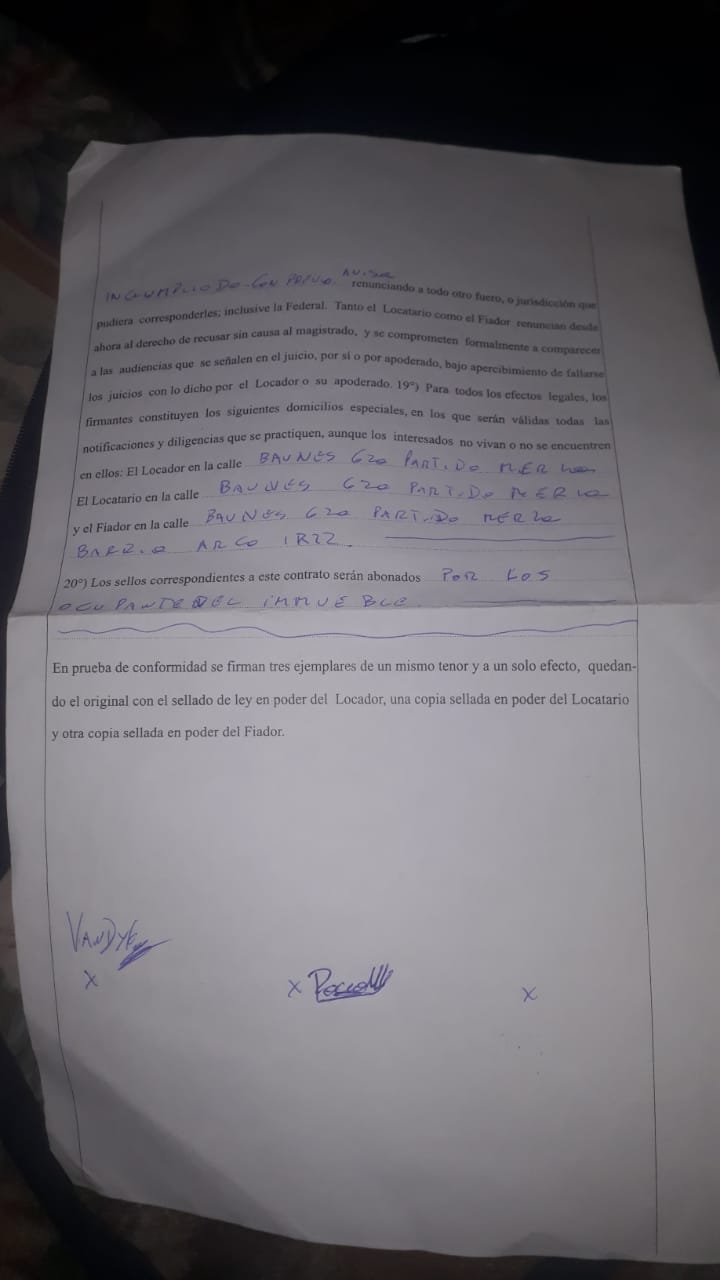 INCUMPLIODO-CON PREVIO AVISO renunciando a todo otro fuero, o jurisdicción que
pudiera corresponderles; inclusive la Federal. Tanto el Locatario como el Fiador renuncian desde
ahora al derecho de recusar sin causa al magistrado, y se comprometen formalmente a comparecer
a las audiencias que se señalen en el juicio, por si o por apoderado, bajo apercibimiento de fallarse
los juicios con lo dicho por el Locador o su apoderado. 19º) Para todos los efectos legales, los
firmantes constituyen los siguientes domicilios especiales, en los que serán válidas todas las
notificaciones y diligencias que se practiquen, aunque los interesados no vivan o no se encuentren
en ellos: El Locador en la calle BAUNES 620 PARTIDO MERLO
El Locatario en la calle BAUNES 620 PARTIDO MERLO
y el Fiador en la calle BAUNES 620 PARTIDO MERLO
BARRIO ARCO
20º) Los sellos correspondientes a este contrato serán abonados POR LOS
OCUPANTE DEL iMMUEBLE
En prueba de conformidad se firman tres ejemplares de un mismo tenor y a un solo efecto, quedan-
do el original con el sellado de ley en poder del Locador, una copia sellada en poder del Locatario
y otra copia sellada en poder del Fiador.
X
X
X